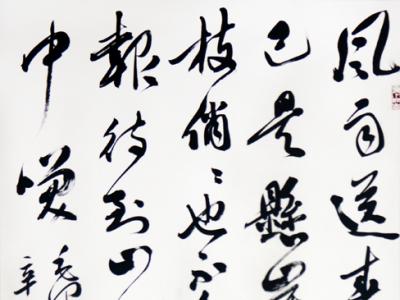 風雨送春
已是懸崖
枝俏々也不
報待到山
中咲
辛